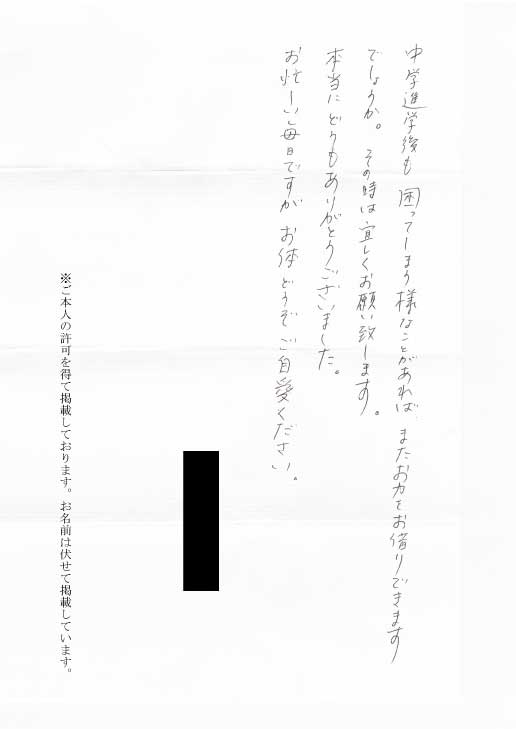 中学進学後も 困ってしまう様なことがあれば、またお力をお借りできます
でしょうか。 その時は宜しくお願い致します。
本当にどうもありがとうございました。
お忙しい毎日ですが お体どうぞご自愛ください。
※ご本人の許可を得て掲載しております。お名前は伏せて掲載しています。